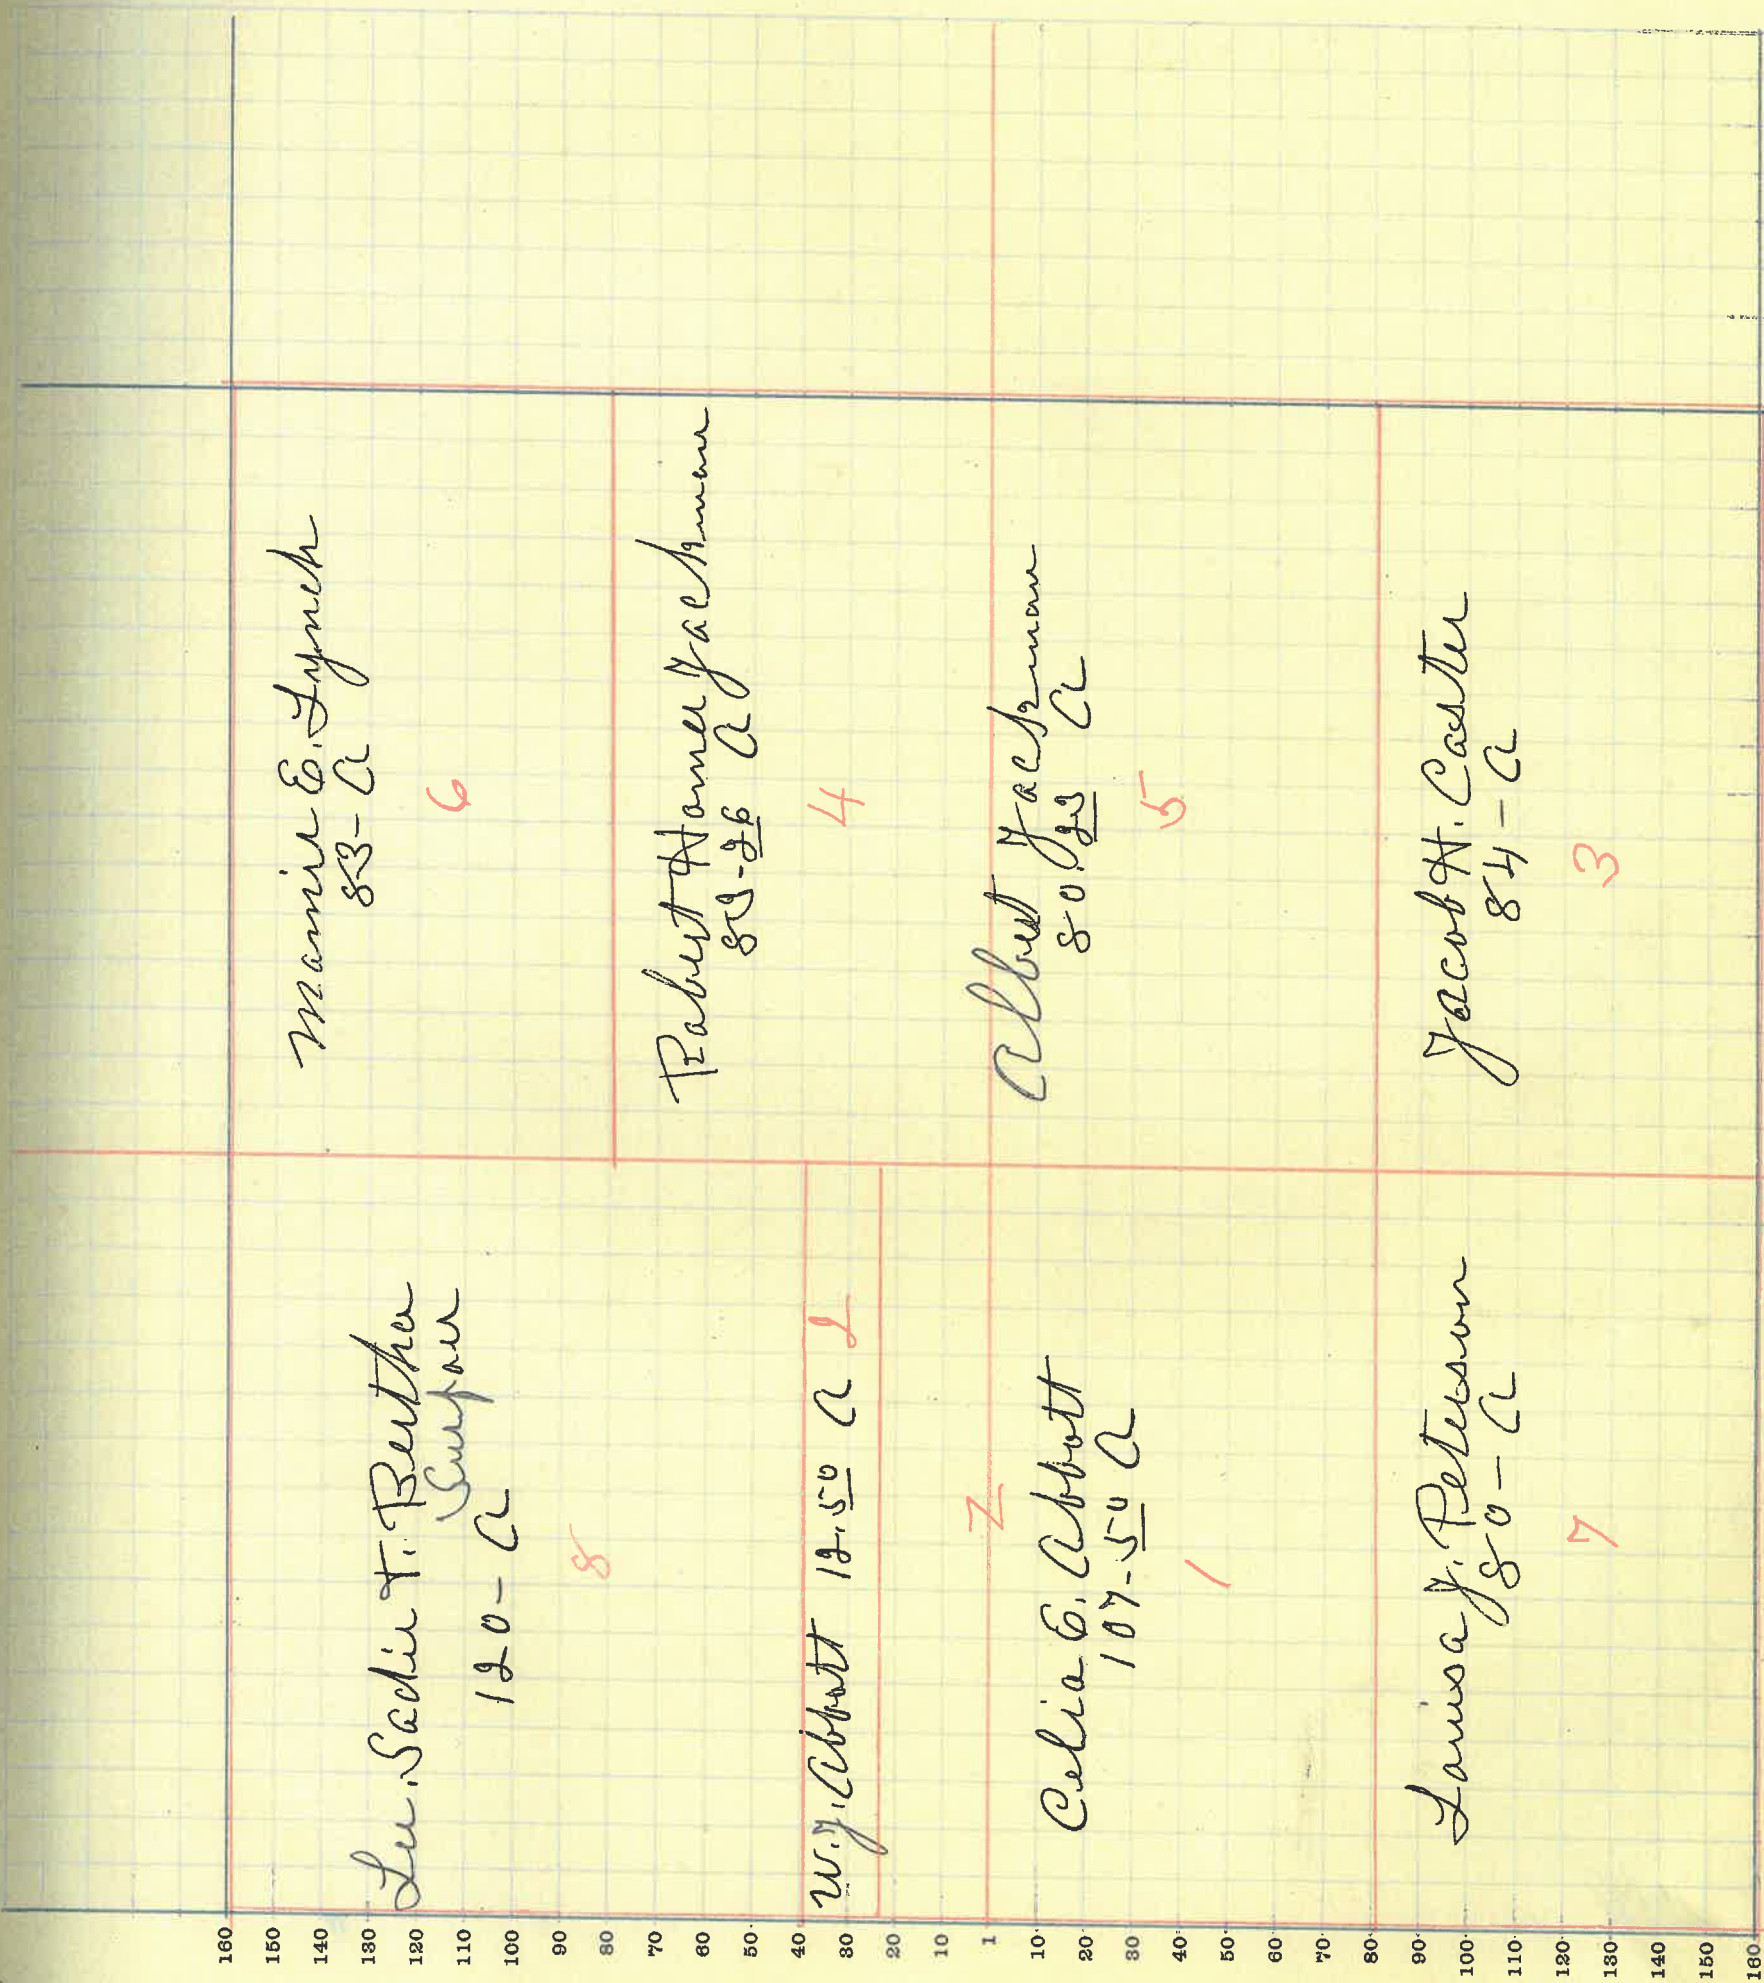 Mamie E. Lynch
83- a
6
Robert Homer Jackman
83-26 a
4
Albert Jackman
80.23 a
5
Jacob H. Caster
84 - a
3
Lee. Sadie T. Bertha
120- a
8
W.J. Abbott 12.50 a 2
Z
Celia E. Abbott
107-50 a
1
Louisa J. Peterson
80- a
7
160
150
140
130
120
110
100
90
80
70
60
50
40
30
20
10
1
10
20
30
40
50
60
70
80
90
100
110
120
130
140
150
160